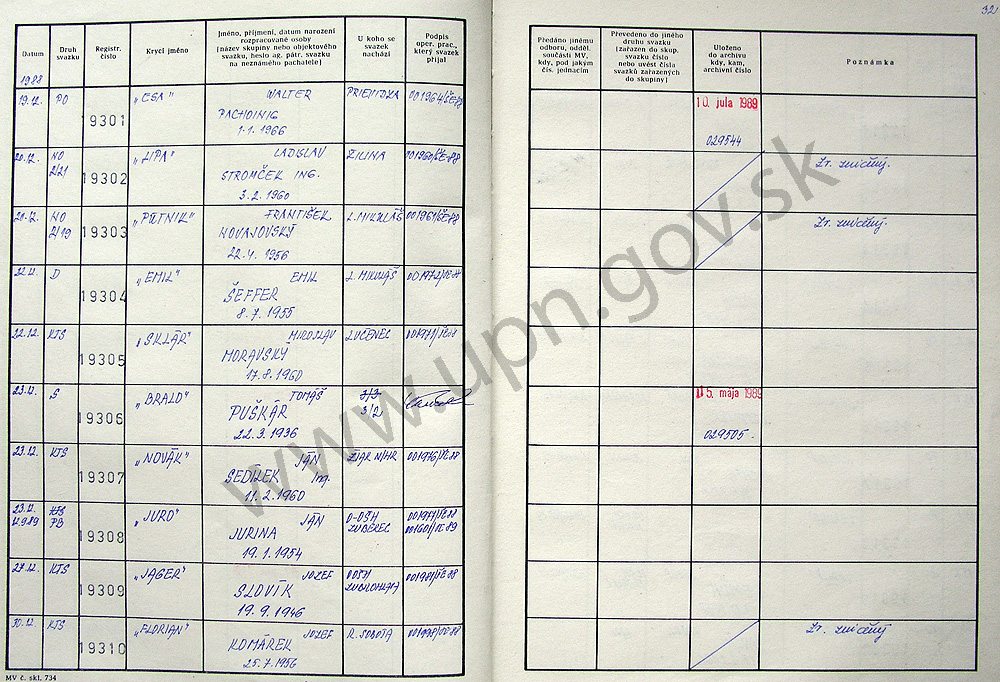 32
Datum
Druh svazku
Registr. číslo
Krycí jméno
Jméno, příjmení, datum narození
rozpracované osoby
[název skupiny nebo objektového
svazku, heslo ag. pátr. svazku
na neznámého pachatele]
U koho se
svazek
nachází
Podpis
oper. prac.,
který svazek
přijal
Předáno jinému
odboru, odděl.
součásti MV,
kdy, pod jakým
čís. jednacím
Převedeno do jiného
druhu svazku
[zařazen do skup.
svazku číslo
nebo uvést čísla
svazků zařazených
do skupiny]
Uloženo
do archivu
kdy, kam,
archivní číslo
Poznámka
1988
19.12. PO 19301 „ESA" WALTER
PACHOINIG
1.1.1966
PRIEVIDZA
10. jula 1989
029544
20.12. NO 2/21 19302 „LIPA" LADISLAV
STROMČEK ING.
3.2.1960
ŽILINA
Zv. zničený.
20.12. NO 2/19 19303 „PÚTNIK" FRANTIŠEK
NOVAJOVSKÝ
22.4.1956
L. MIKULÁŠ
Zv. zničený.
22.12. D 19304 „EMIL" EMIL
ŠEFFER
8.7.1955
L. MIKULÁŠ
22.12. KTS 19305 „SKLÁR" MIROSLAV
MORAVSKÝ
17.8.1960
LUČENEC
23.12. S 19306 „BRALO" TOMÁŠ
PUŠKÁR
22.3.1936
3/2
5. maja 1989
029505.
23.12. KTS 19307 „NOVÁK" JÁN
SEDILEK Ing.
11.2.1960
ŽIAR N/HR
23.12. KTS PB 19308 „JURO" JÁN
JURINA
19.1.1954
O-OSH
ZUBEREC
27.12. KTS 19309 „JÁGER" JOZEF
SLOVÍK
19.9.1946
30.12. KTS 19310 „FLORIAN" JOZEF
KOMÁREK
25.7.1956
R. SOBOTA
Zv. zničený
MV č. skl. 734
www.upn.gov.sk